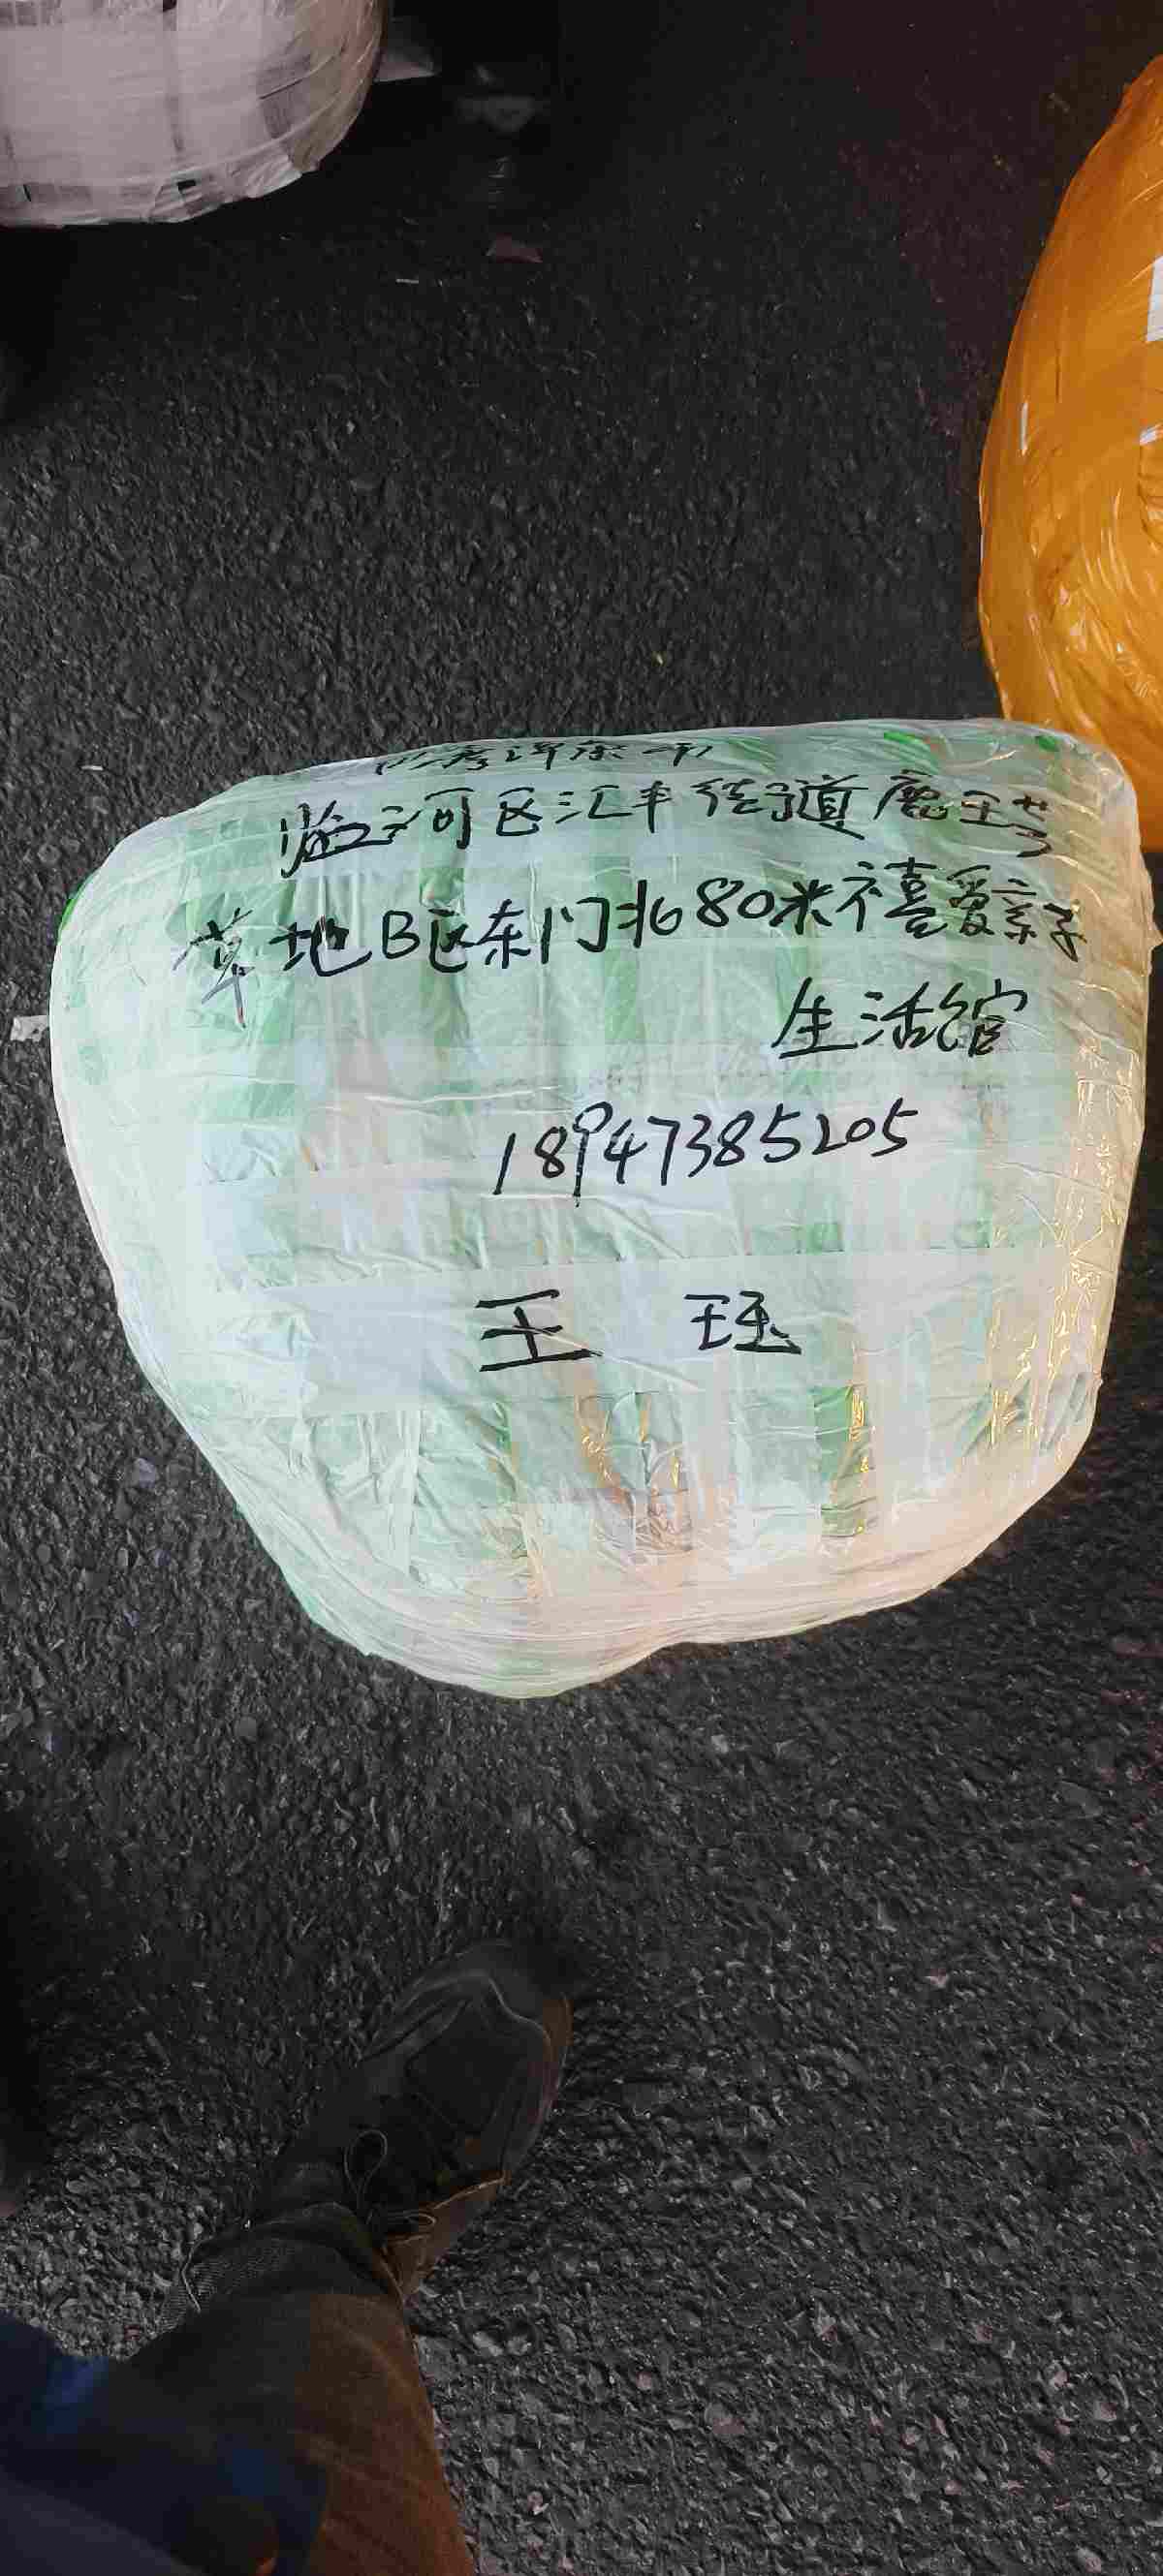 巴彦淖尔市
临河区汇丰街道鹿王芳
草地B区东门北680米禧爱亲子
生活馆
18947385205
王 珏